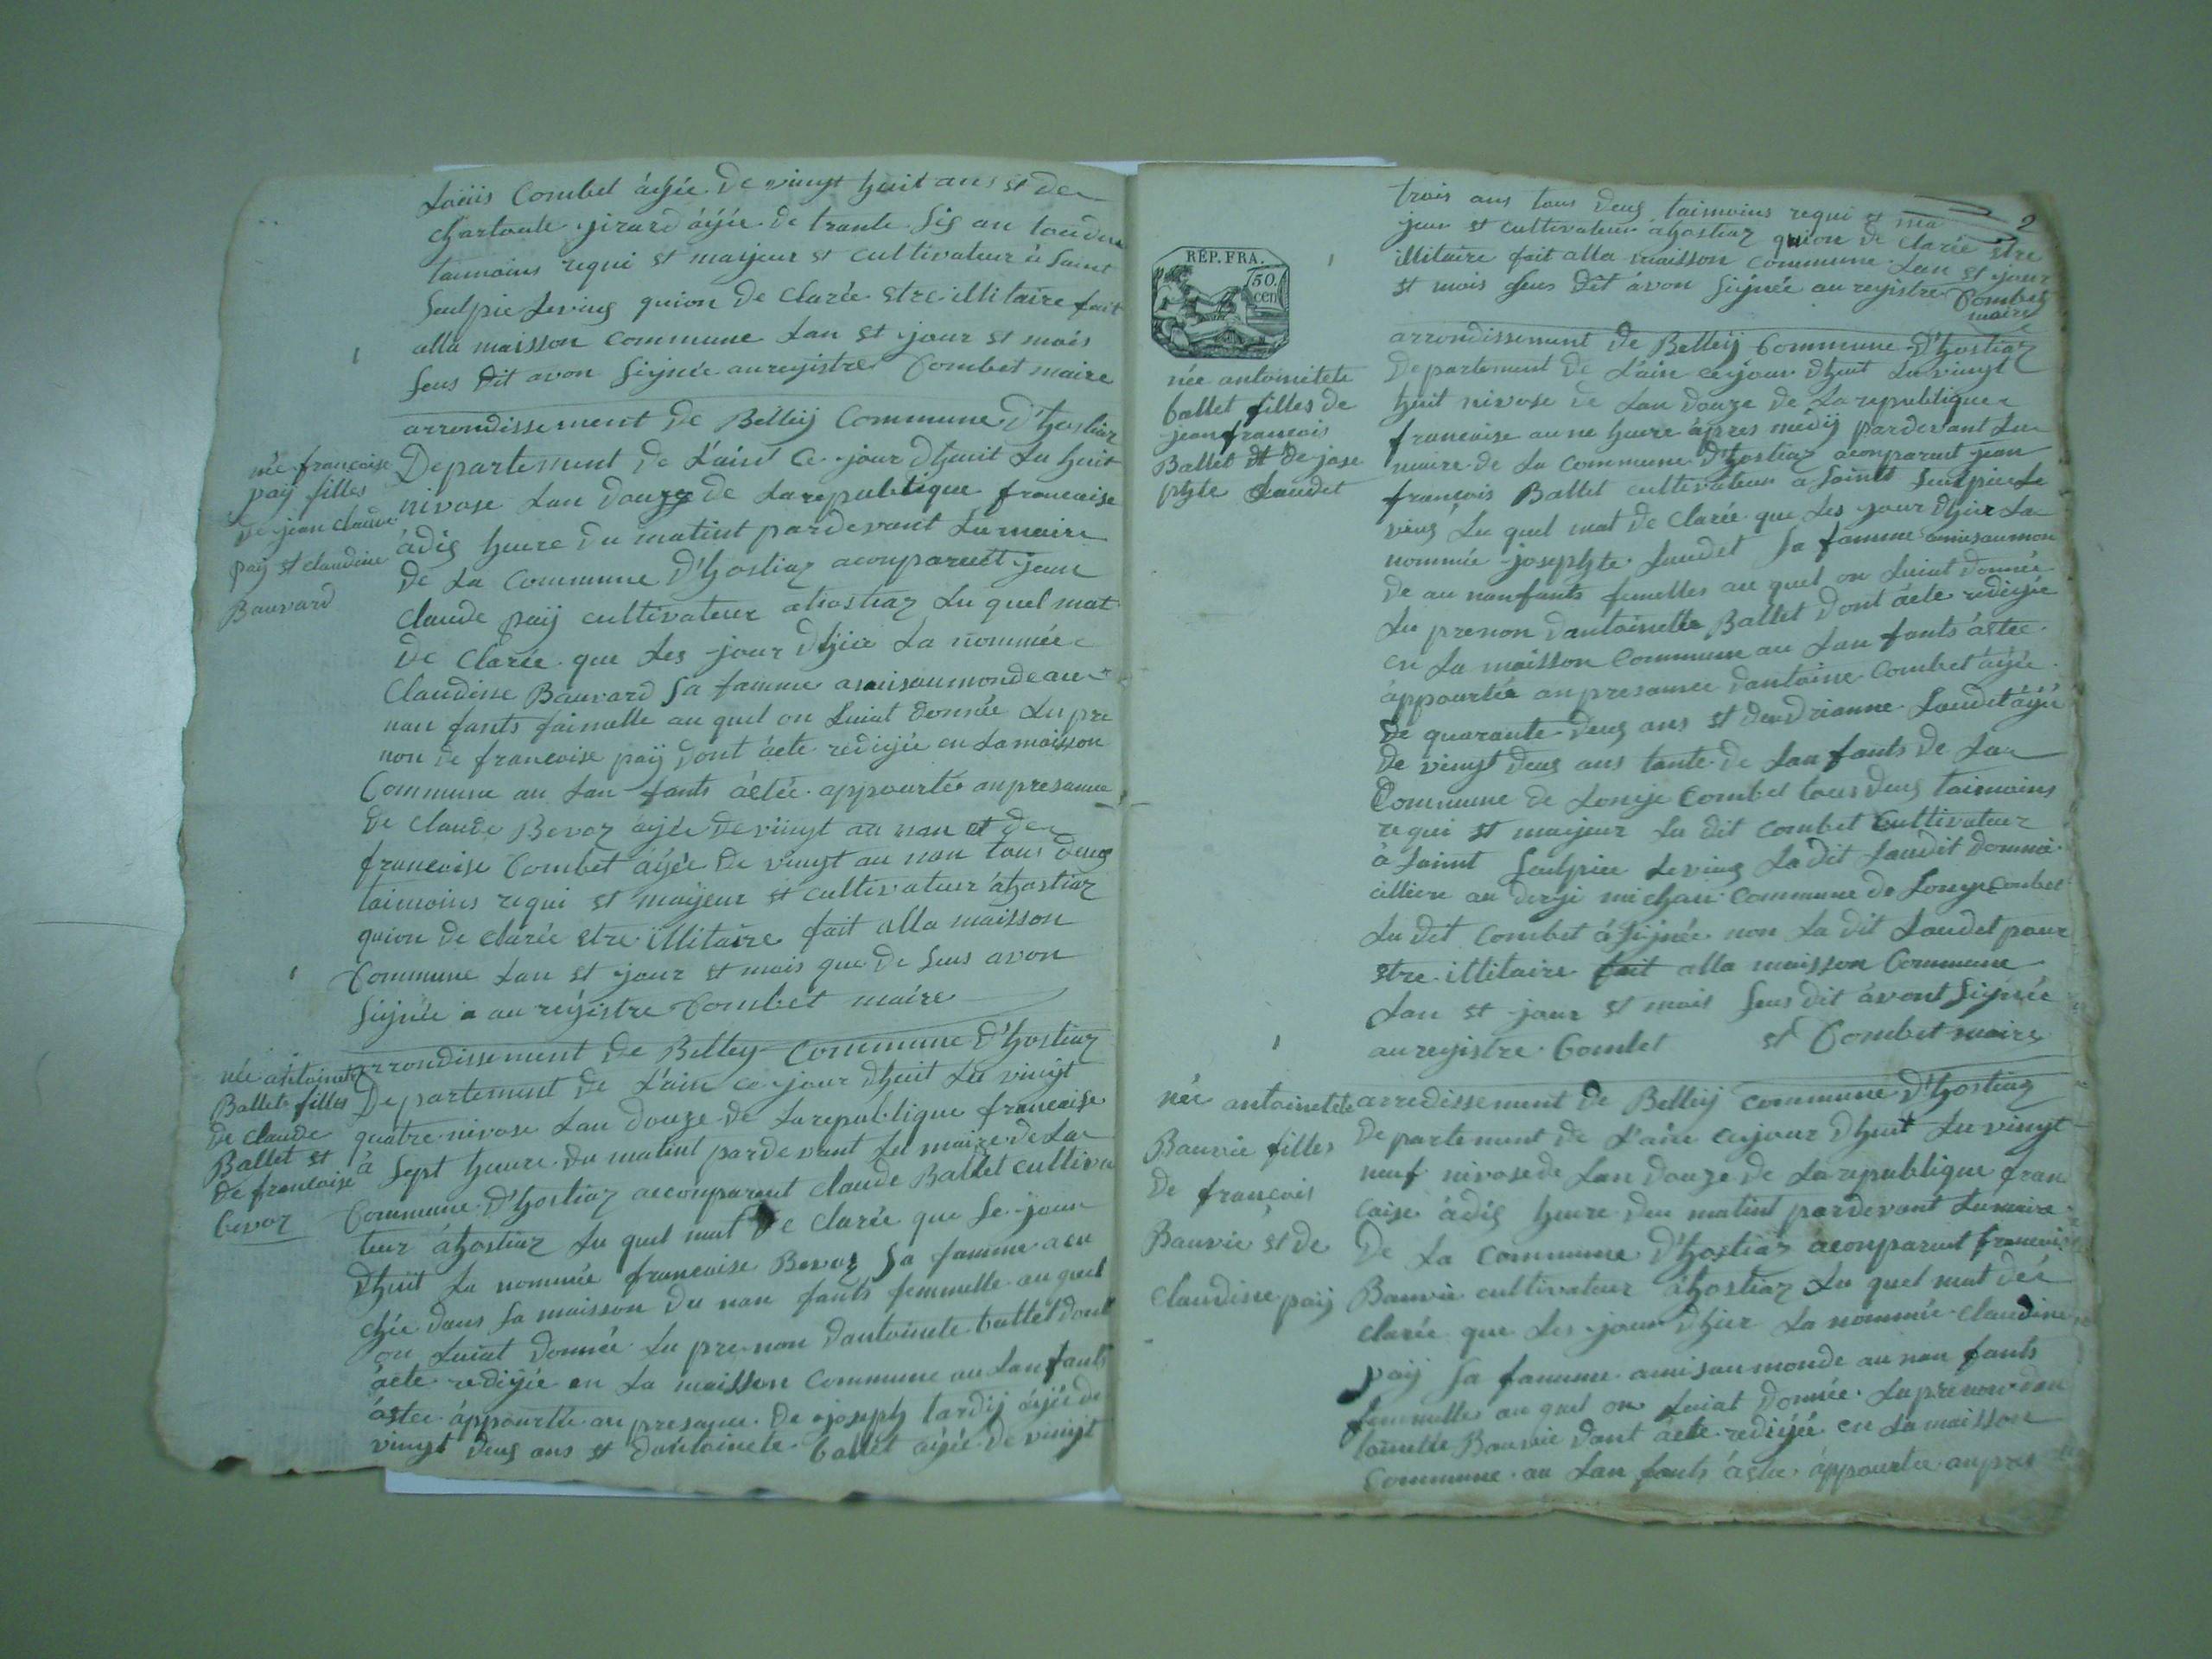 Louis Combet âgée de vingt huit ans st de
charloute girard âgée de trante sis an toudeu
taimoins requi st majeur st cultivateur à saint
sulpie leving quion de clarée stre illitaire fait
alla maisson commune lan st jour st mois
sus dit avon signée au registre Combet maire
née francoise
paÿ filles
de jean claude
paÿ st claudine
Bauvard
arrondissement de Belleÿ commune d'hostiaz
Departement de l'ain ce jour dhuit lu huit
nivose lan douze de la republique francaise
àdis heure du matint pardevant lu maire
de la commune d'hostiaz aconparuit jean
claude paÿ cultivateur ahostiaz lu quel mat
de clarée que les jour dhier la nommée
Claudine Bauvard sa famme amisaumonde au
nan fants faimelle au quel on luiat donnée lu pre
non de francoise paÿ dont acte redigée en la maisson
Commune au lan fants àetée appourtée anpresance
de claude Bevoz agée de vingt au nan et de
francoise Combet agée de vingt au nan tous deus
taimoins requi st majeur st cultivateur ahostiaz
quion de clarée stre illitaire fait alla maisson
Commune lan st jour st mois que de sus avon
signée a au régistre Combet maire
née antoinete
Ballet filles
de claude
Ballet st
de francoise
bevoz
arrondissement de Belley commune d'hostiaz
Departement de l'ain ce jour dhuit lu vingt
quatre nivose lan douze de la republique francaise
à sept heure du matint pardevant lu maire de la
Commune d'hostiaz aconparuit claude Ballet cultiva
teur àhostiaz lu quel mat de clarée que le jour
dhuit la nommée francoise Bevoz sa famme acu
chée dans sa maisson du nan fants femmelle au quel
on luiat donnée lu pre non dantoinete ballet dont
àcte redigée en la maisson commune au lan fants
àstée appourtée an presance de joseph tardiÿ agée de
vingt deus ans st dantoinete ballet agée de vingt
2
trois ans tous deus taimoins requi st ma
jeur st cultivateur ahostiaz quion de clarée stre
illitaire fait alla maisson commune lan st jour
st mois sus dit avon signée au registre Combet
maire
RÉP. FRA.
50.
cen
née antoinetete
ballet filles de
jean francois
Ballet st de jose
phte laudet
arrondissement de Belleÿ commune d'hostiaz
Departement de l'ain cejour dhuit lu vingt
huit nivose de lan douze de la republique
francaise aune heure àpres midÿ pardevant lu
maire de la commune d'hostiaz aconparuit jean
francois Ballet cultivateur a saint sulpice le
ving lu quel mat de clarée que les jour dhier la
nommée josephte laudet sa famme amisaumon
de au nanfants femelles au quel on luiat donnée
lu prenon dantoinette Ballet dont acte redigée
en la maisson commune au lan fants àstée
àppourtée anpresance dantoine Combet agée
de quarante deus ans st dandrianne laudet agée
de vingt deus ans tante de lan fants de la
Commune de longe Combet tous deus taimoins
requi st majeur lu dit combet cultivateur
à saint sulpice leving la dit laudit dommi
cilliere au dergi michau commune de longe conbet
lu dit Combet à signée non la dit laudet pour
stre illitaire fait alla maisson commune
lan st jour st mois sus dit àvont signée
au registre Combet st Combet maire
née antoinetete
Bauvie filles
de francois
Bauvie st de
claudine paÿ
arredissement de Belleÿ commune d'hostiaz
Departement de l'ain cejour dhuit lu vingt
neuf nivose de lan douze de la republique fran
caise àdis heure du matint pardevant lumaire
de la commune d'hostiaz aconparuit francois
Bauvie cultivateur àhostiaz lu quel mat dée
clarée que les jour dhier la nommée claudine
paÿ sa famme amisaumonde au nan fants
femmelle au quel on luiat donnée lu prenon dan
toinette Bauvie dont àcte redigée en la maisson
commune au lan fants àstée àppourtée anpres